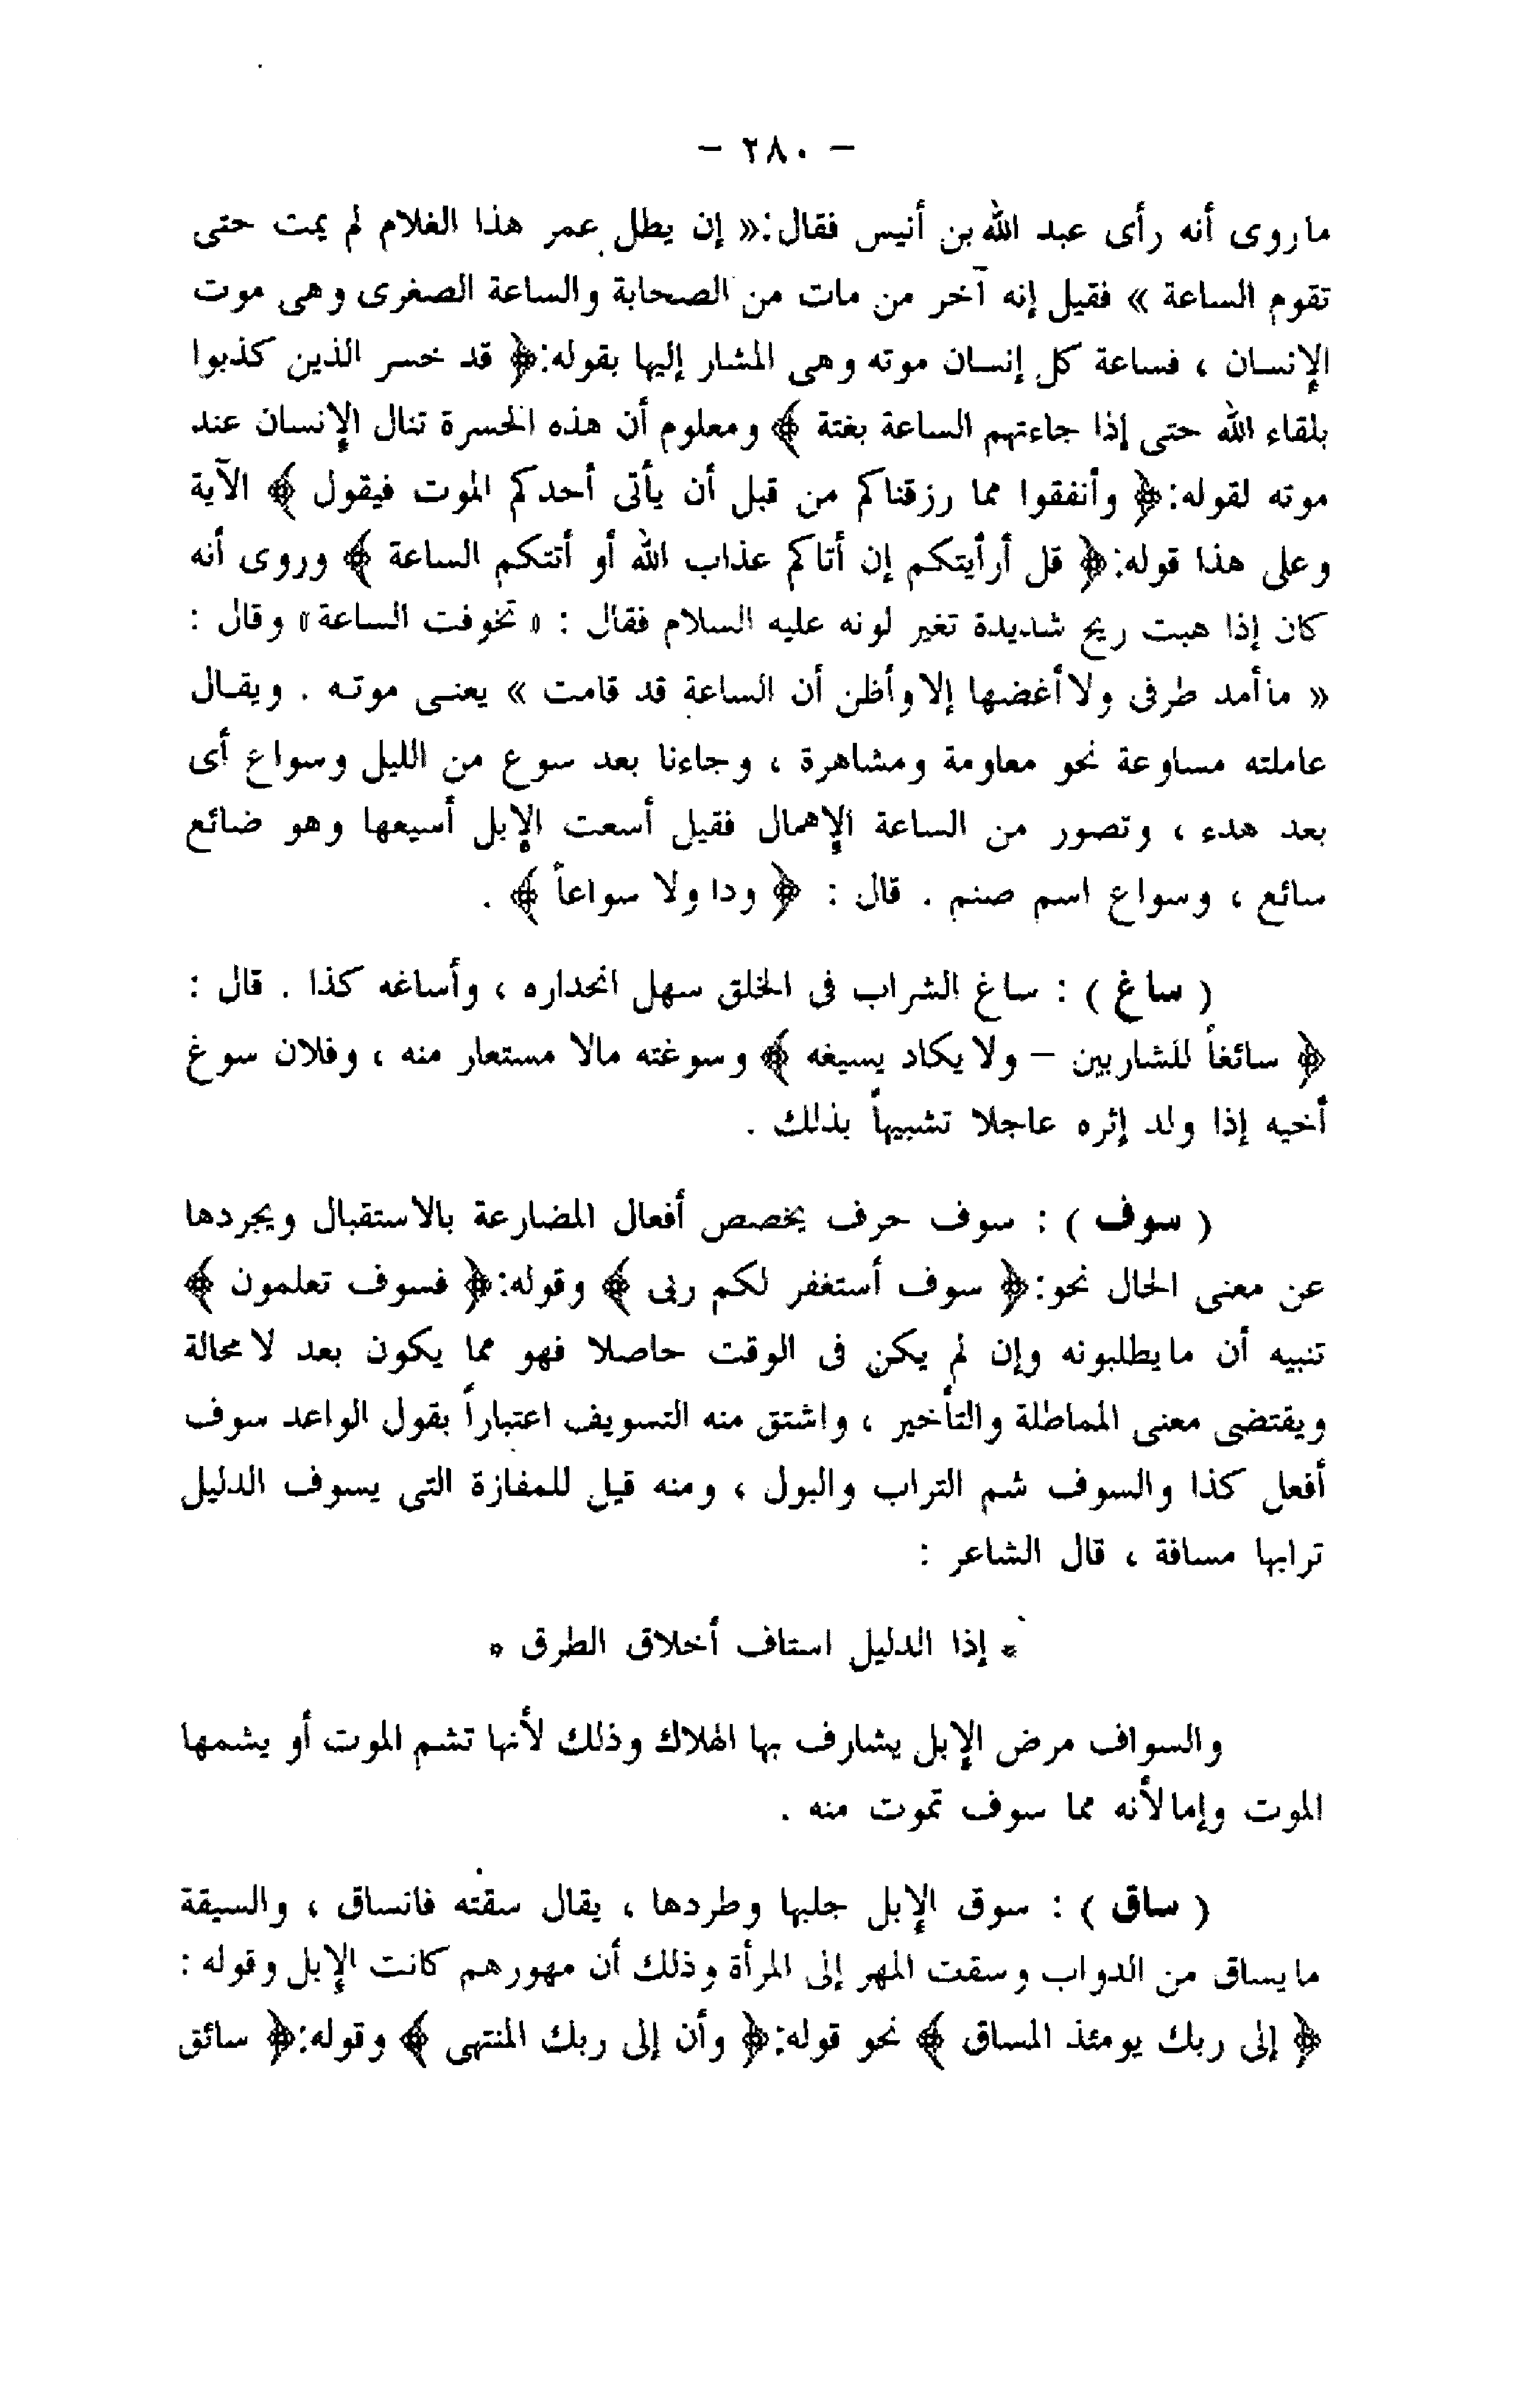 - ٢٨٠ -
ماروى أنه رأى عبد الله بن أنيس فقال:« إن يطل عمر هذا الغلام لم يمت حتى
تقوم الساعة » فقيل إنه آخر من مات من الصحابة والساعة الصغرى وهى موت
الإنسان ، فساعة كل إنسان موته وهى المشار إليها بقوله:﴿ قد خسر الذين كذبوا
بلقاء الله حتى إذا جاءتهم الساعة بغتة ﴾ ومعلوم أن هذه الحسرة تنال الإنسان عند
موته لقوله:﴿ وأنفقوا مما رزقناكم من قبل أن يأتى أحدكم الموت فيقول ﴾ الآية
وعلى هذا قوله:﴿ قل أرأيتكم إن أتاكم عذاب الله أو أتتكم الساعة ﴾ وروى أنه
كان إذا هبت ريح شديدة تغير لونه عليه السلام فقال : « تخوفت الساعة» وقال :
« ما أمد طرفى ولا أغضها إلا وأظن أن الساعة قد قامت » يعنى موته . ويقال
عاملته مساوعة نحو معاومة ومشاهرة ، وجاءنا بعد سوع من الليل وسواع أى
بعد هدء ، وتصور من الساعة الإهمال فقيل أسعت الإبل أسيعها وهو ضائع
سائع ، وسواع اسم صنم . قال : ﴿ ودا ولا سواعاً ﴾ .
( ساغ ) : ساغ الشراب فى الحلق سهل انحداره ، وأساغه كذا . قال :
﴿ سائغاً للشاربين - ولا يكاد يسيغه ﴾ وسوغته مالا مستعار منه ، وفلان سوغ
أخيه إذا ولد إثره عاجلا تشبيهاً بذلك .
( سوف ) : سوف حرف يخصص أفعال المضارعة بالاستقبال ويجردها
عن معنى الحال نحو:﴿ سوف أستغفر لكم ربى ﴾ وقوله:﴿ فسوف تعلمون ﴾
تنبيه أن مايطلبونه وإن لم يكن فى الوقت حاصلا فهو مما يكون بعد لا محالة
ويقتضى معنى المماطلة والتأخير ، واشتق منه التسويف اعتباراً بقول الواعد سوف
أفعل كذا والسوف شم التراب والبول ، ومنه قيل للمفازة التى يسوف الدليل
ترابها مسافة ، قال الشاعر :
* إذا الدليل استاف أخلاق الطرق *
والسواف مرض الإبل يشارف بها الهلاك وذلك لأنها تشم الموت أو يشمها
الموت وإما لأنه مما سوف تموت منه .
( ساق ) : سوق الإبل جلبها وطردها ، يقال سقته فانساق ، والسيقة
مايساق من الدواب وسقت المهر إلى المرأة وذلك أن مهورهم كانت الإبل وقوله :
﴿ إلى ربك يومئذ المساق ﴾ نحو قوله:﴿ وأن إلى ربك المنتهى ﴾ وقوله:﴿ سائق